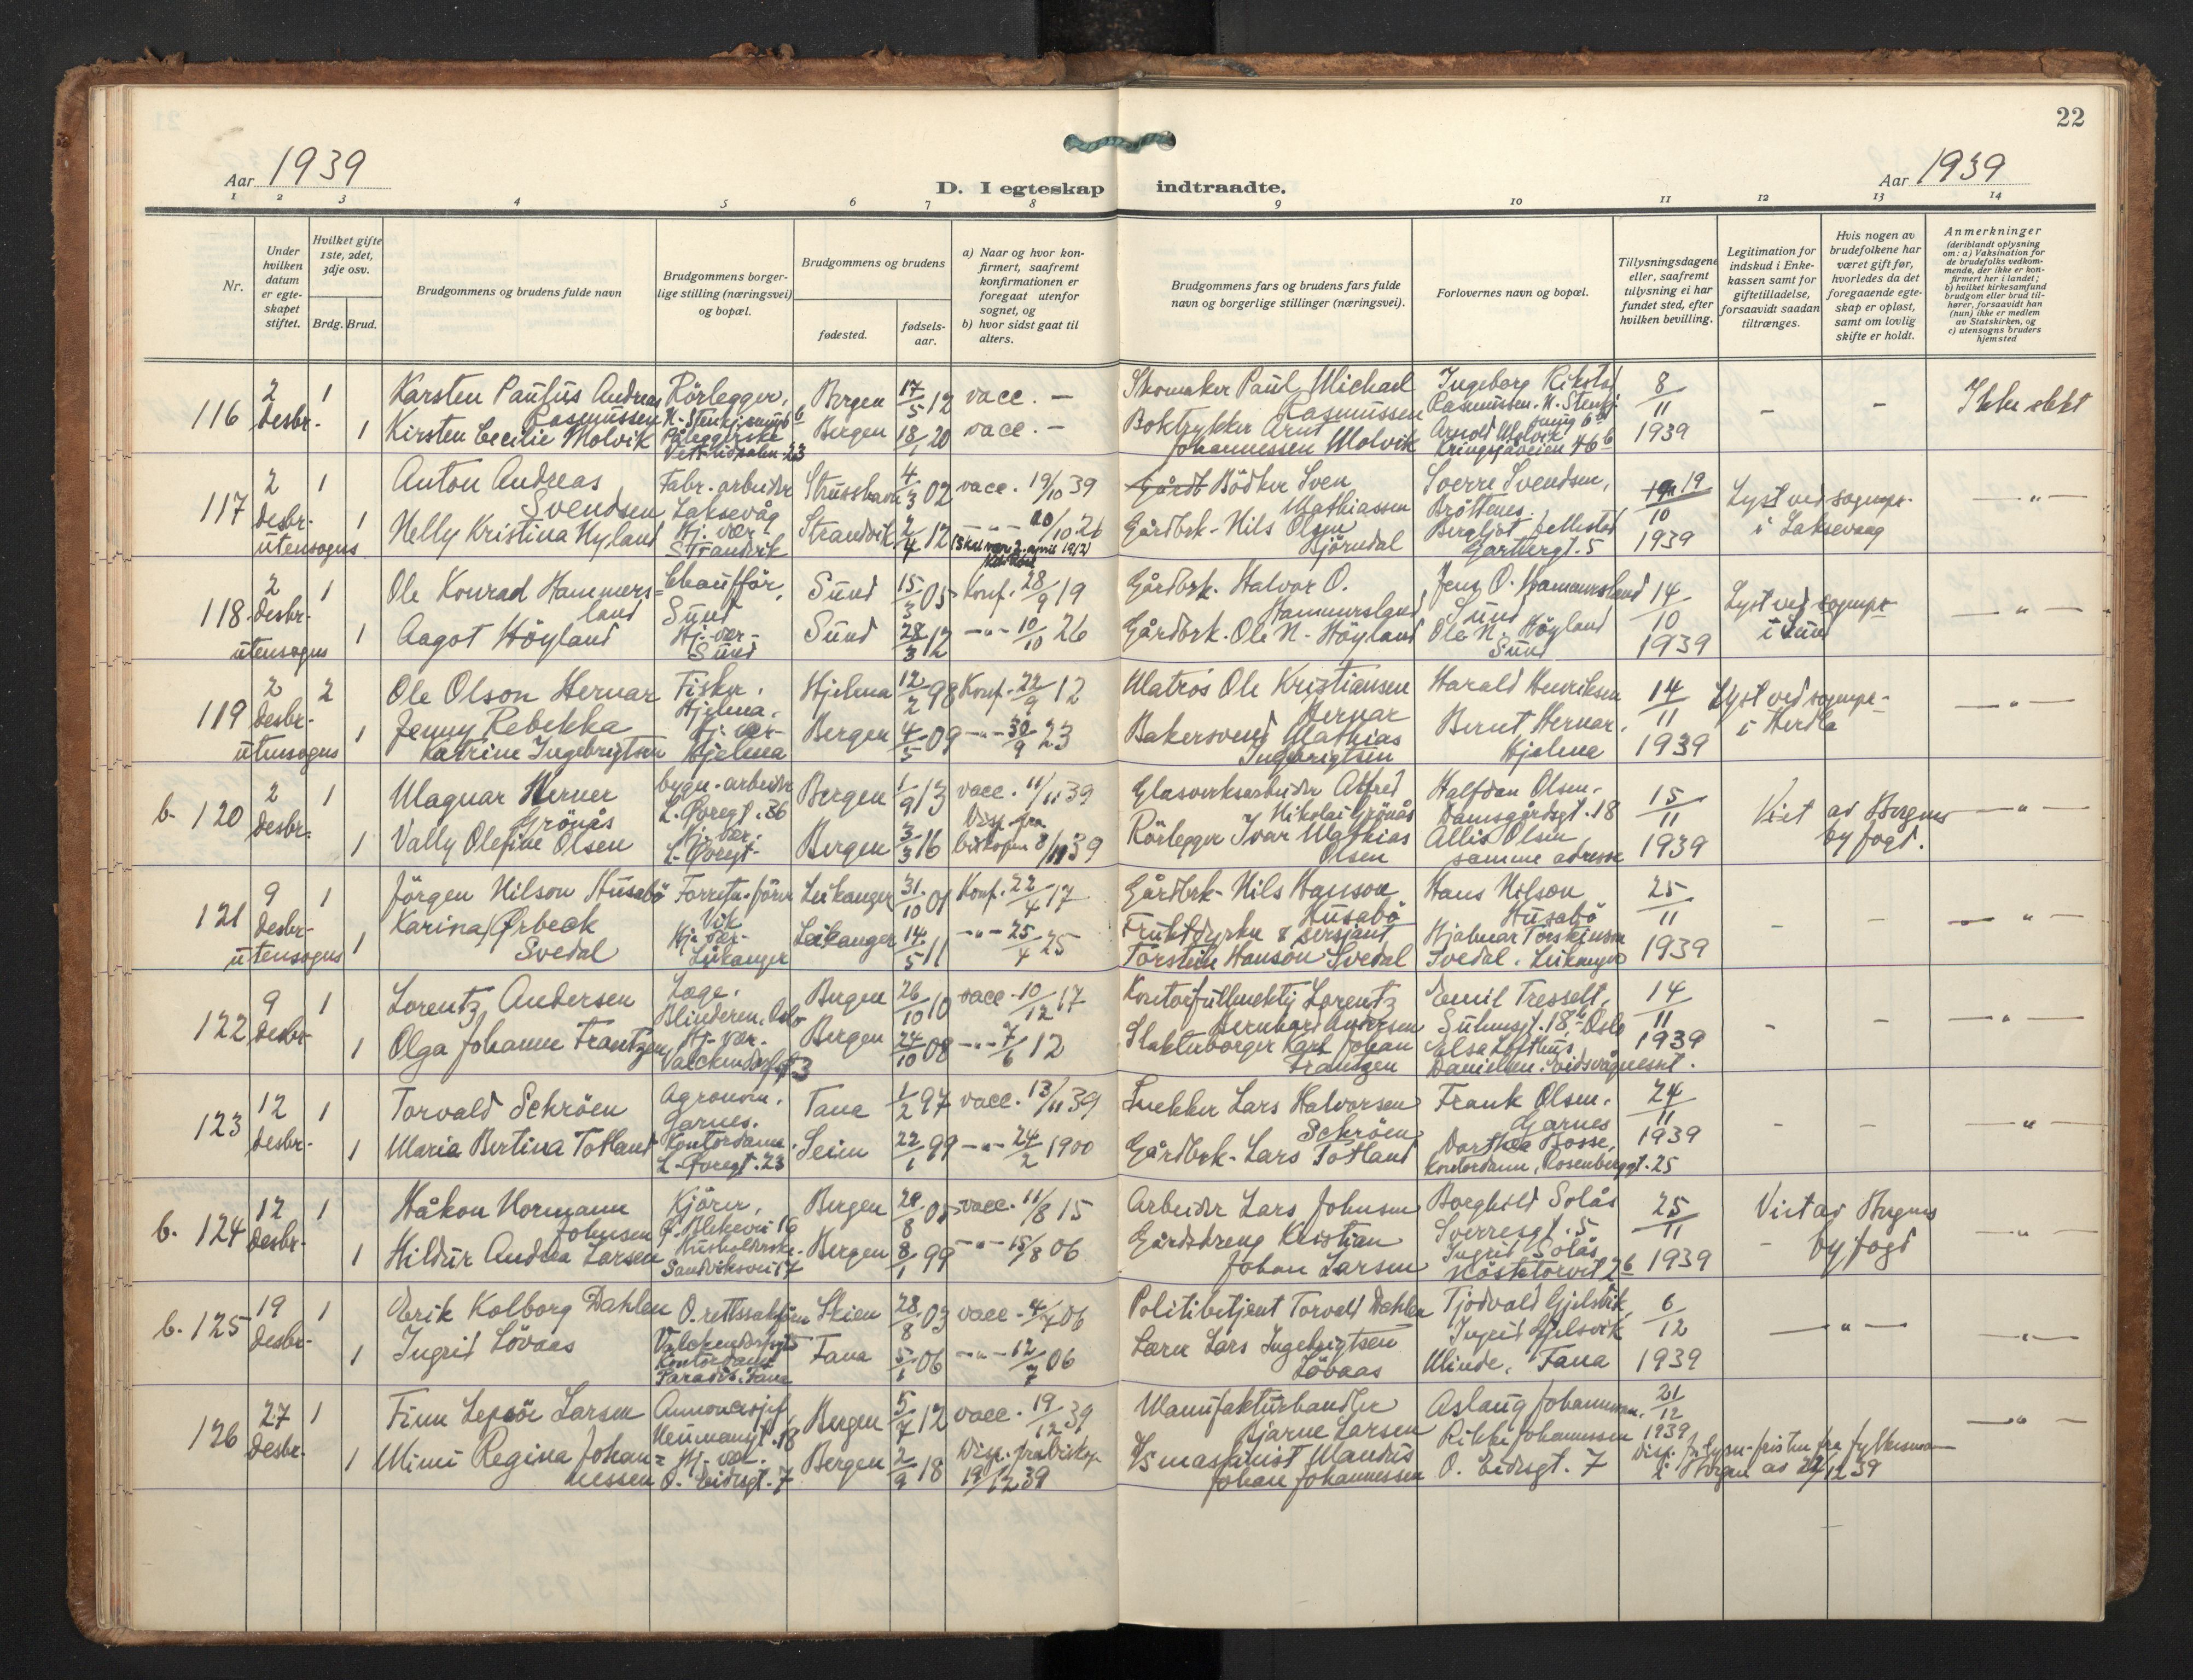 22
Aar 1939
D. I egteskap indtraadte.
Aar 1939
1 2 3 4 5 6 7 8 9 10 11 12 13 14
Nr.
Under hvilken datum er egte-skapet stiftet.
Hvilket gifte 1ste, 2det, 3dje osv.
Brdg. Brud.
Brudgommens og brudens fulde navn
Brudgommens borger-lige stilling (næringsvei) og bopæl.
Brudgommens og brudens
fødested.
fødsels-aar.
a) Naar og hvor kon-firmert, saafremt konfirmationen er foregaat utenfor sognet, og
b) hvor sidst gaat til alters.
Brudgommens fars og brudens fars fulde navn og borgerlige stillinger (næringsvei).
Forlovernes navn og bopæl.
Tillysningsdagene eller, saafremt tillysning ei har fundet sted, efter hvilken bevilling.
Legitimation for indskud i Enke-kassen samt for giftetilladelse, forsaavidt saadan tiltrænges.
Hvis nogen av brudefolkene har været gift før, hvorledes da det foregaaende egte-skap er opløst, samt om lovlig skifte er holdt.
Anmerkninger
(deriblandt oplysning om: a) Vaksination for de brudefolks vedkom-mende, der ikke er kon-firmert her i landet; b) hvilket kirkesamfund brudgom eller brud til-hører, forsaavidt han (hun) ikke er medlem av Statskirken, og c) utensogns bruders hjemsted
116 2 desbr. 1 Karsten Paulus Andreas Rasmussen Rörlegger, Bergen 17/5 12 vacc. — Skomaker Paul Michael Rasmussen Ingeborg Rasmussen. 8/11 1939 - - Ikke slekt
1 Kirsten Cecilie Molvik Bergen 18/1 20 vacc. — Boktrykker Arnt Johannessen Molvik Arnold Molvik
117 2 desbr. utensogns 1 Anton Andreas Svendsen Fabr. arbeider Laksevåg Strusshavn 4/3 02 vacc. 19/10 39 Gårdb Bödker Sven Mathiassen Sverre Svendsen, 19/10 1939 Lyst ved sognepr. i Laksevaag — " —
1 Nelly Kristina Nyland Hj. vær. Strandvik Strandvik 2/4 12 — " — 10/10 26 (Skal være 2. april 1912) Gårdbrk. Nils Olsen Björndal
118 2 desbr. utensogns 1 Ole Konrad Hammers=land Chaufför, Sund Sund 15/3 05 Konf. 28/9 19 Gårdbrk. Halvor O. Hammersland Jens O. Hammersland Sund 14/10 1939 Lyst ved sognepr. i Sund — " —
1 Aagot Höyland Hj. vær- Sund Sund 28/3 12 — " — 10/10 26 Gårdbrk. Ole N. Höyland Ole N. Höyland Sund
119 2 desbr. utensogns 2 Ole Olson Hernar Fisker. Hjelma. Hjelma 12/2 98 Konf. 22/9 12 Matros Ole Kristiansen Hernar Harald Henriksen 14/11 1939 Lyst ved sognepr. i Herdla — " —
1 Jenny Rebekka Katrine Ingebrigtsen Hj. vær- Hjelma Bergen 4/5 09 — " — 30/9 23 Bakersvend Mathias Ingebrigtsen Bernt Hernar. Hjelme
b. 120 2 desbr. 1 Magnar Werner Grönås bygn. arbeider L. Øvregt. 36 Bergen 1/9 13 vacc. 11/11 39 Glasverksarbeider Alfred Nikolai Grönås Halfdan Olsen. Damsgårdsgt. 18 15/11 1939 Viet av Bergens byfogd. — " —
1 Vally Olefine Olsen Hj. vær. L. Øvregt. Bergen 3/3 16 Disp. fra biskopen 8/11 39 Rörlegger Ivar Mathias Olsen Allis Olsen samme adresse
121 9 desbr. utensogns 1 Jörgen Nilson Husabö Forretn. förer Vik Leikanger 31/10 01 Konf. 22/4 17 Gårdbrk. Nils Hanson Husabö Hans Nilson Husabö 25/11 1939 - - — " —
1 Karina Ørbeck Svedal Hj. vær- Leikanger Leikanger 14/5 11 — " — 25/4 25 Fruktdyrker & sersjant Torstein Hanson Svedal Hjalmar Torsteinson Svedal. Leikanger
122 9 desbr. 1 Lorentz Andersen Læge. Blinderen, Oslo Bergen 26/10 10 vacc. 10/12 17 Kontorfullmektig Lorentz Bernhard Andersen Emil Tresselt, Suhmsgt. 18, Oslo 14/11 1939 - - — " —
1 Olga Johanne Frantzen Hj. vær. Valckendorfsgt 3 Bergen 24/10 08 — " — 7/6 12 Slakterborger Karl Johan Frantzen Elsa Lofthus Danielsen. Eidsvågneset.
123 12 desbr. 1 Torvald Schröen Agronom. Garnes. Tana 1/2 97 vacc. 13/11 39 Snekker Lars Halvorsen Schröen Frank Olsen. Garnes 24/11 1939 - - "
1 Maria Bertina Totland Kontordame. L. Øvregt. 23 Seim 22/1 99 — " — 24/2 1900 Gårdbrk. Lars Totland Dorthea Bosse, kontordame, Rosenberggt. 25
b. 124 12 desbr. 1 Håkon Normann Johnsen Kjörer, Bergen 29/8 05 vacc. 11/8 15 Arbeider Lars Johnsen Borghild Solås Sverresgt. 5 25/11 1939 Viet av Bergens byfogd — " —
1 Hildur Andrea Larsen Husholderske. Sandviksvei 17 Bergen 8/1 99 — " — 15/8 06 Gårdsdreng Kristian Johan Larsen Ingrid Solås Nöstetorvet 26
b. 125 19 desbr. 1 Erik Kolborg Dahlen O. rettssakförer Valckendorfsgt Skien 28/8 03 vacc. 4/7 06 Politibetjent Torvald Dahlen Tjodvald Gjelsvik, 6/12 1939 — " — — " —
1 Ingrid Lövaas Kontordame Paradis. Fana Fana 5/1 06 — " — 12/7 06 Lærer Lars Ingebrigtsen Lövaas Ingrid Gjelsvik Minde, Fana
126 27 desbr. 1 Finn Lepsör Larsen Annoncesjef, Neumansgt. 18 Bergen 5/7 12 vacc. 19/12 39 Manufakturhandler Bjarne Larsen Aslaug Johannessen. 21/12 1939 — " —
1 Mimi Regina Johan=nessen Hj. vær. O. Eidsgt. 7 Bergen 2/9 18 Disp. fra biskop. 19/12 39 Johan Johannessen Rikke Johannessen O. Eidsgt. 7 Disp. f. lysn. fristen fra fylkesmannen i Bergen av 22/12 39